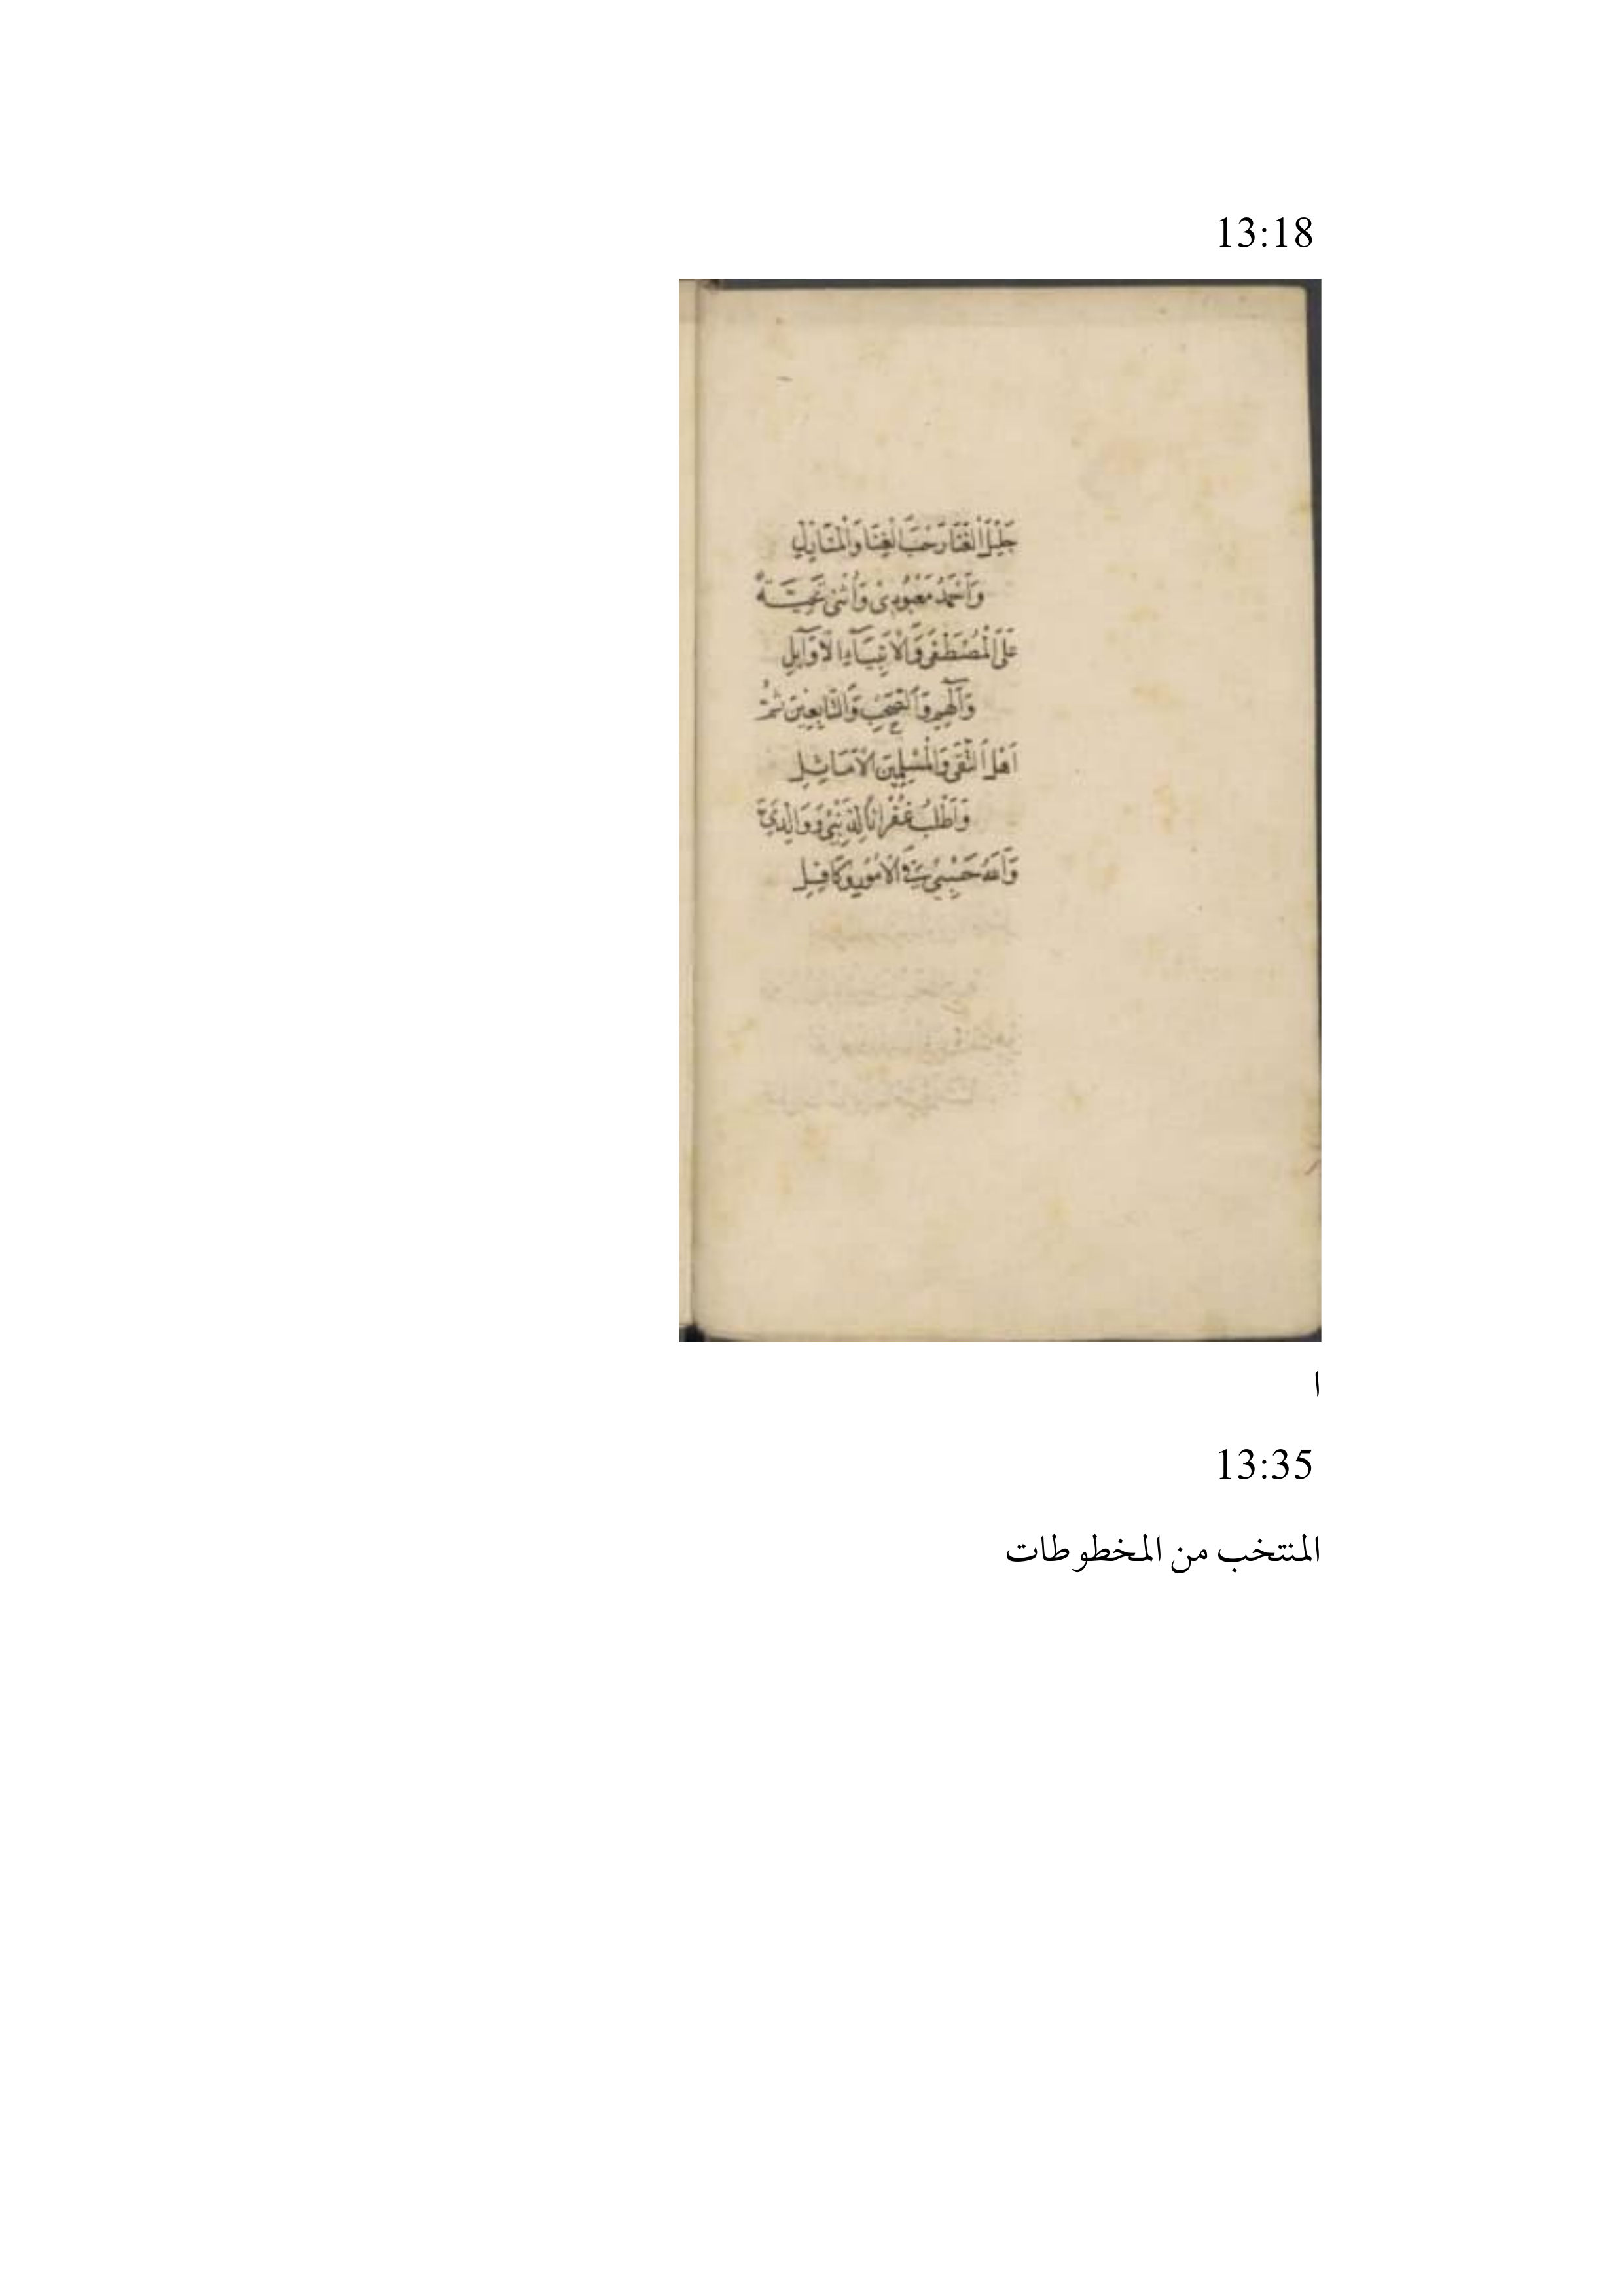 13:18
جَلِيلَ الْغَنَا رَحْبَ الْغِنَا وَالْمَنَازِلِ
وَأَحْمَدُ مَعْبُودِى وَأُثْنِى تَحِيَّةً
عَلَى الْمُصْطَفَى وَالْاَنْبِيَآءِ الْاَوَآئِلِ
وَآلِهِمِ وَالصَّحْبِ وَالتَّابِعِينَ ثُمَّ
اَهْلِ التُّقَى وَالْمُسْلِمِينَ الْاَمَاثِلِ
وَاَطْلُبُ غُفْرَانًا لِذَنْبِى وَوَالِدَىَّ
وَاللّٰهُ حَسْبِى فِى الْاُمُورِ وَكَافِلِ
ا
13:35
المنتخب من المخطوطات